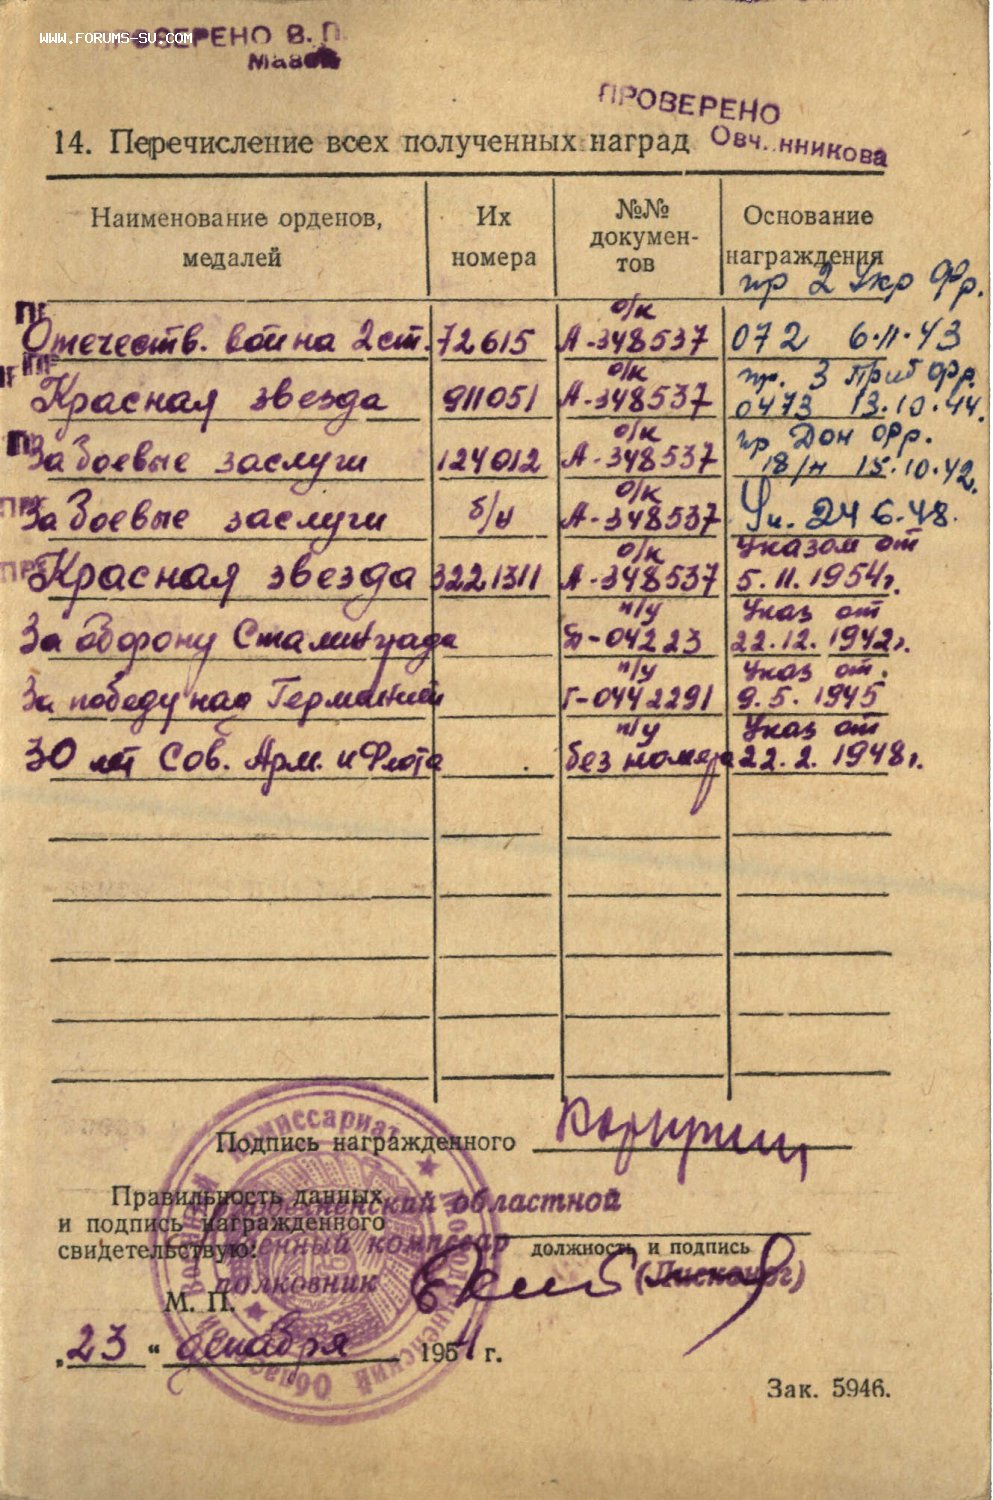 WWW.FORUMS-SU.COM
ПРОВЕРЕНО В. П.
ПРОВЕРЕНО
14. Перечисление всех полученных наград
Наименование орденов, медалей
Их номера
№№ докумен-
тов
Основание
награждения
пр 2 Укр Фр.
Отечеств. война 2 ст. 72615 о/к А-348537 072 6.11.43
Красная звезда 911051 о/к А-348537 пр. 3 Приб фр. 0473 13.10.44.
За боевые заслуги 124012 о/к А-348537 пр Дон фр. 18/н 15.10.42.
За боевые заслуги б/н о/к А-348537 Ук. 24 6.48.
Красная звезда 3221311 о/к А-348537 Указом от 5.11.1954г.
За оборону Сталинграда п/у 04223 Указ от 22.12.1942г.
За победу над Германией п/у Г-0442291 Указ от. 9.5.1945
30 лет Сов. Арм. и Флота п/у без номера Указ от 22.2.1948г.
Подпись награжденного
Правильность данных
и подпись награжденного
свидетельствую:
областной
военный комиссар
полковник
должность и подпись
М. П.
„23“ декабря 1954 г.
Военный Комиссариат
Зак. 5946.